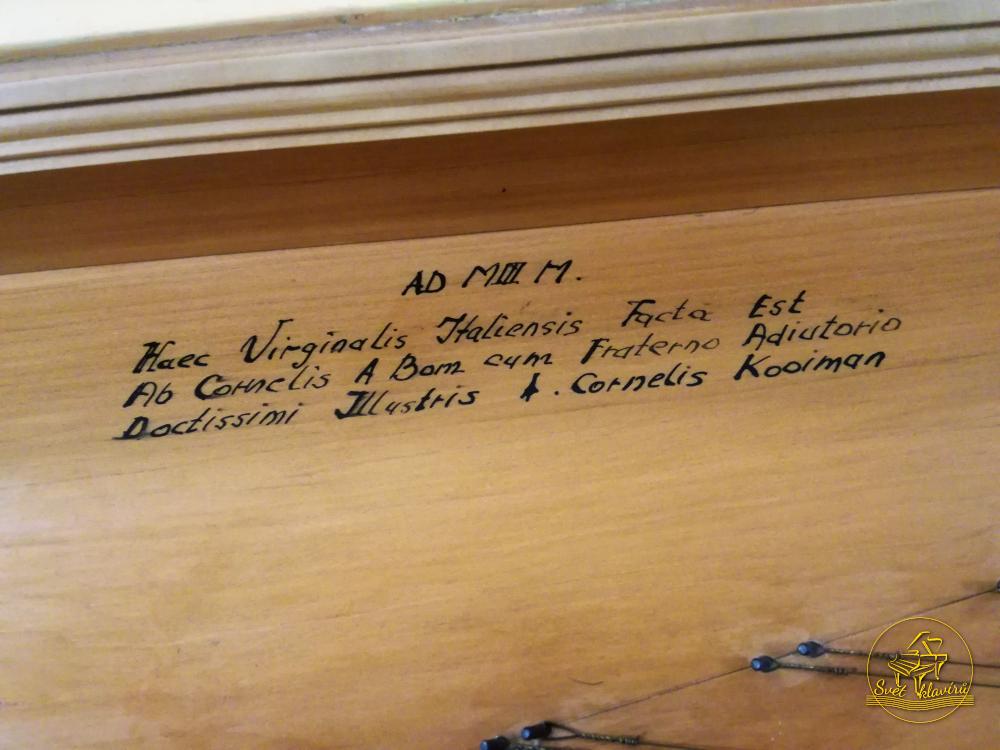 AD MIII M.
Haec Virginalis Italiensis Facta Est
Ab Cornelis A Bom cum Fraterno Adiutorio
Doctissimi Illustris A. Cornelis Kooiman
Svět klavírů